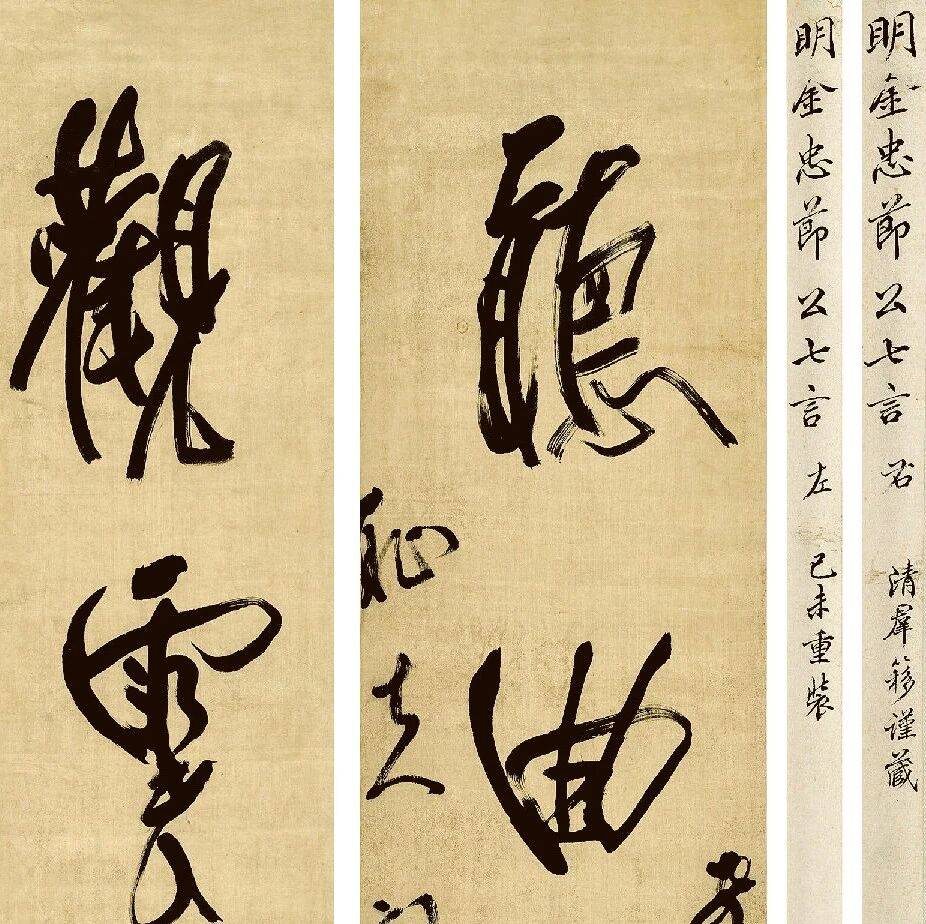 明金忠節公七言 右 清羣簃謹藏
明金忠節公七言 左 己未重裝
聽曲
觀雲